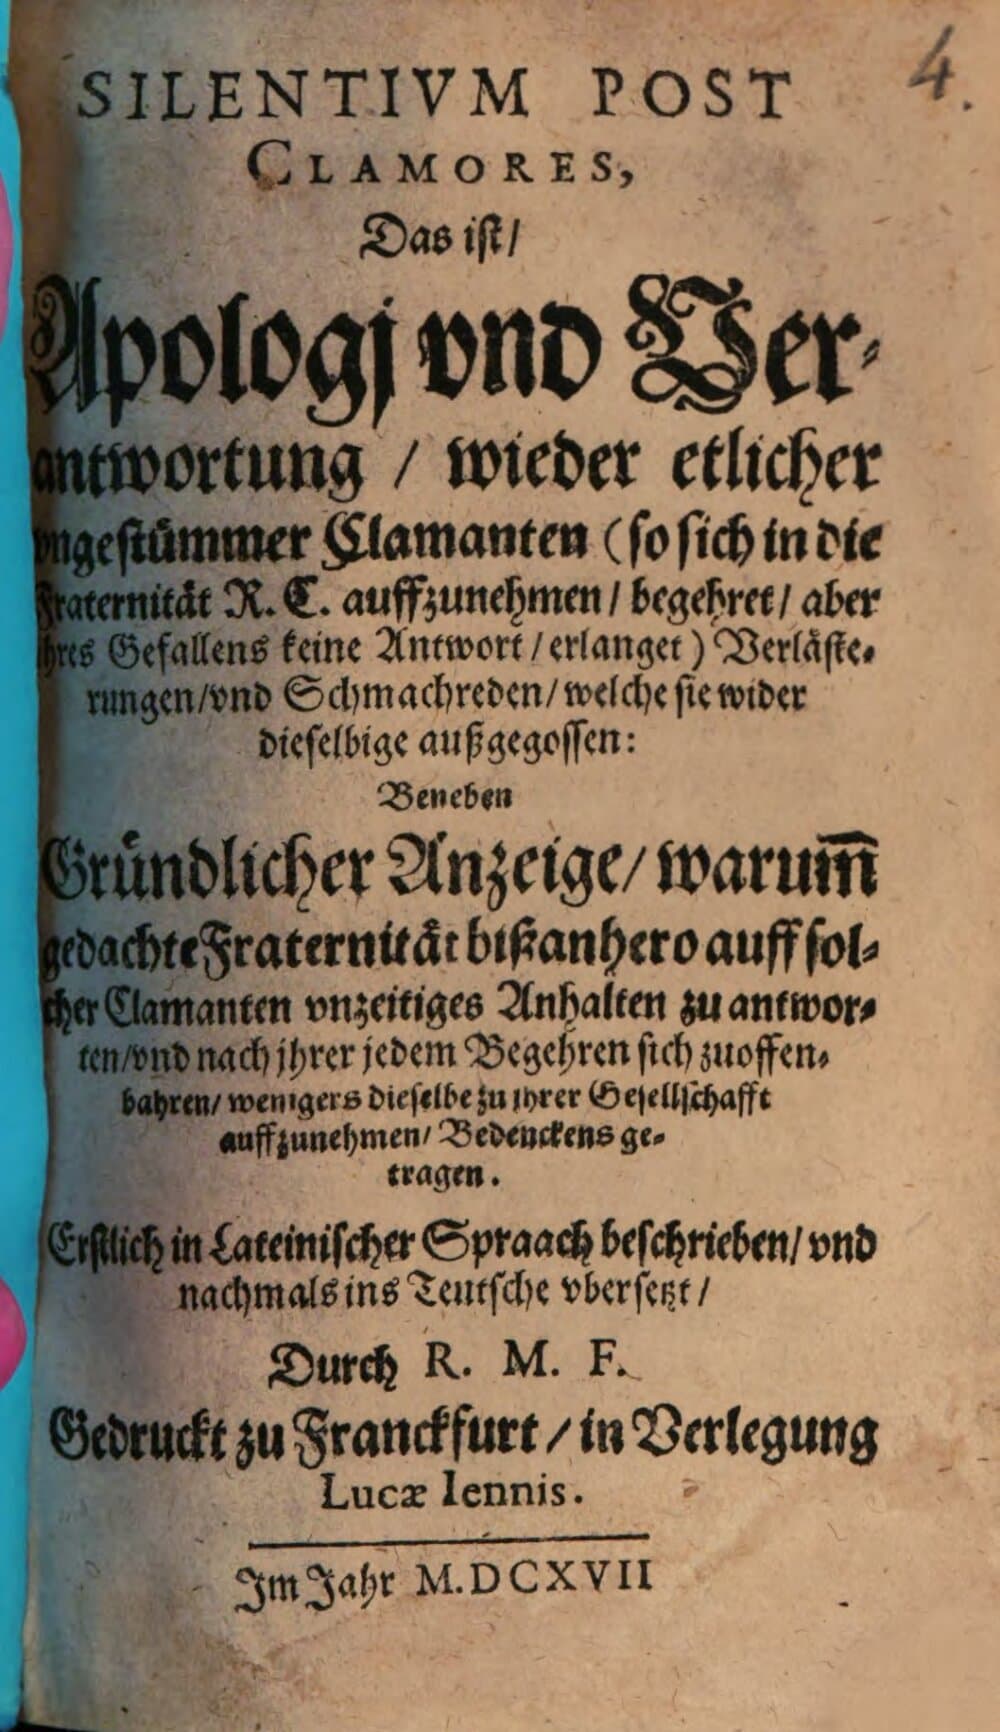 4.
SILENTIVM POST
CLAMORES,
Das ist/
Apologj vnd Ver-
antwortung / wieder etlicher
vngestům̃er Clamanten (so sich in die
Fraternitåt R. C. auffzunehmen / begehret / aber
jhres Gefallens keine Antwort / erlanget) Verlåste-
rungen/vnd Schmachreden/ welche sie wider
dieselbige außgegossen:
Beneben
Gründlicher Anzeige/ warum̃
gedachte Fraternitåt bißanhero auff sol-
cher Clamanten vnzeitiges Anhalten zu antwor-
ten/vnd nach jhrer jedem Begehren sich zuoffen-
bahren/ wenigers dieselbe zu jhrer Gesellschafft
auffzunehmen/ Bedenckens ge-
tragen.
Erstlich in Lateinischer Spraach beschrieben/ vnd
nachmals ins Teutsche vbersetzt /
Durch R. M. F.
Gedruckt zu Franckfurt / in Verlegung
Lucæ Iennis.
Im Jahr M.DCXVII